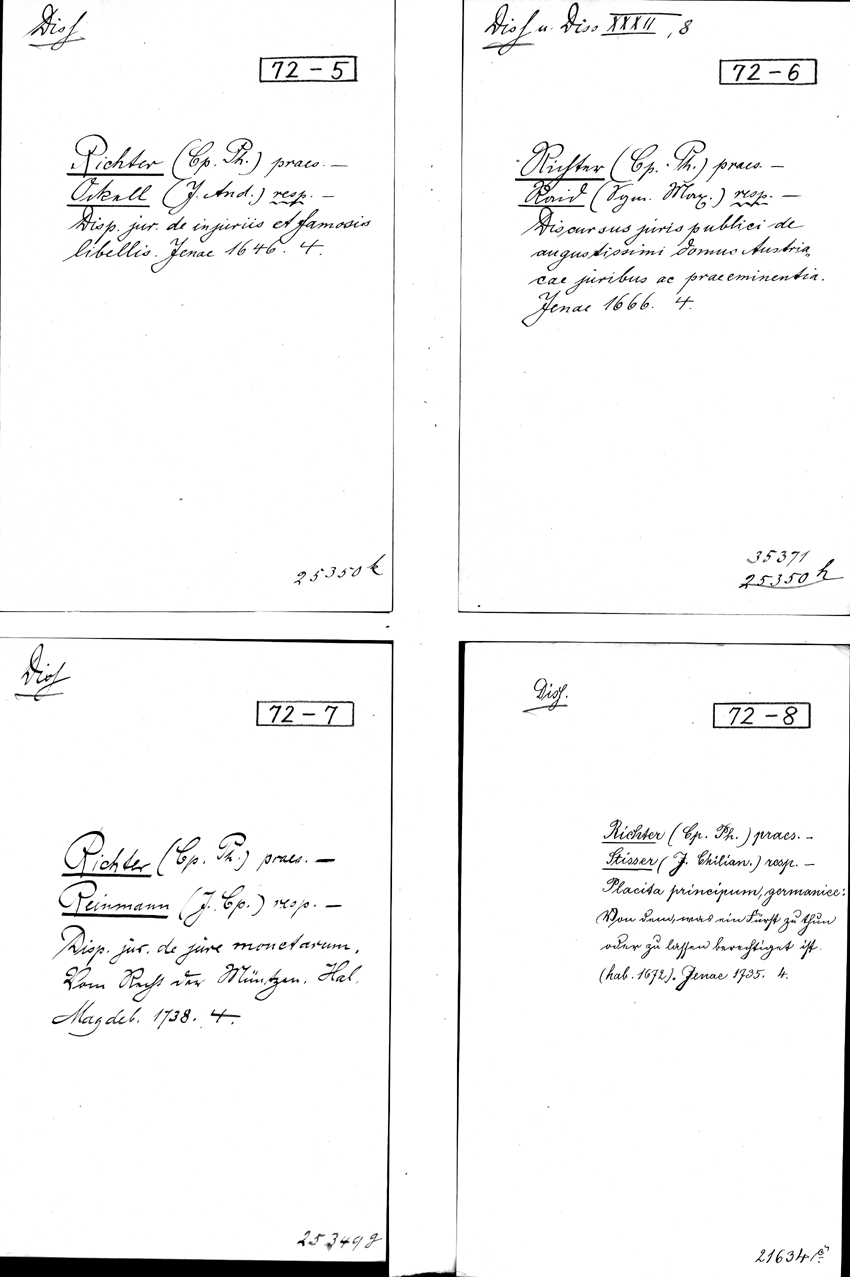 Diss
72-5
Richter (Cp. Ph.) praes. —
Ockell (J. And.) resp. —
Disp. jur. de injuriis et famosis
libellis. Jenae 1646. 4.
25350 k
Diss u. Diss XXXII, 8
72-6
Richter (Cp. Ph.) praes. —
Kaid (Sgm. Max.) resp. —
Discursus juris publici de
augustissimi domus Austria,
cae juribus ac praeeminentia.
Jenae 1666. 4.
35371
25350 h
Diss
72-7
Richter (Cp. Ph.) praes. —
Reinmann (J. Cp.) resp. —
Disp. jur. de jure monetarum,
Vom Recht der Müntzen. Hal.
Magdeb. 1738. 4.
25349 g
Diss.
72-8
Richter (Cp. Ph.) praes. —
Stisser (J. Chilian.) resp. —
Placita principum, germanice:
Von dem, was ein Fürst zu thun
oder zu lassen berechtiget ist.
(hab. 1672). Jenae 1735. 4.
21634